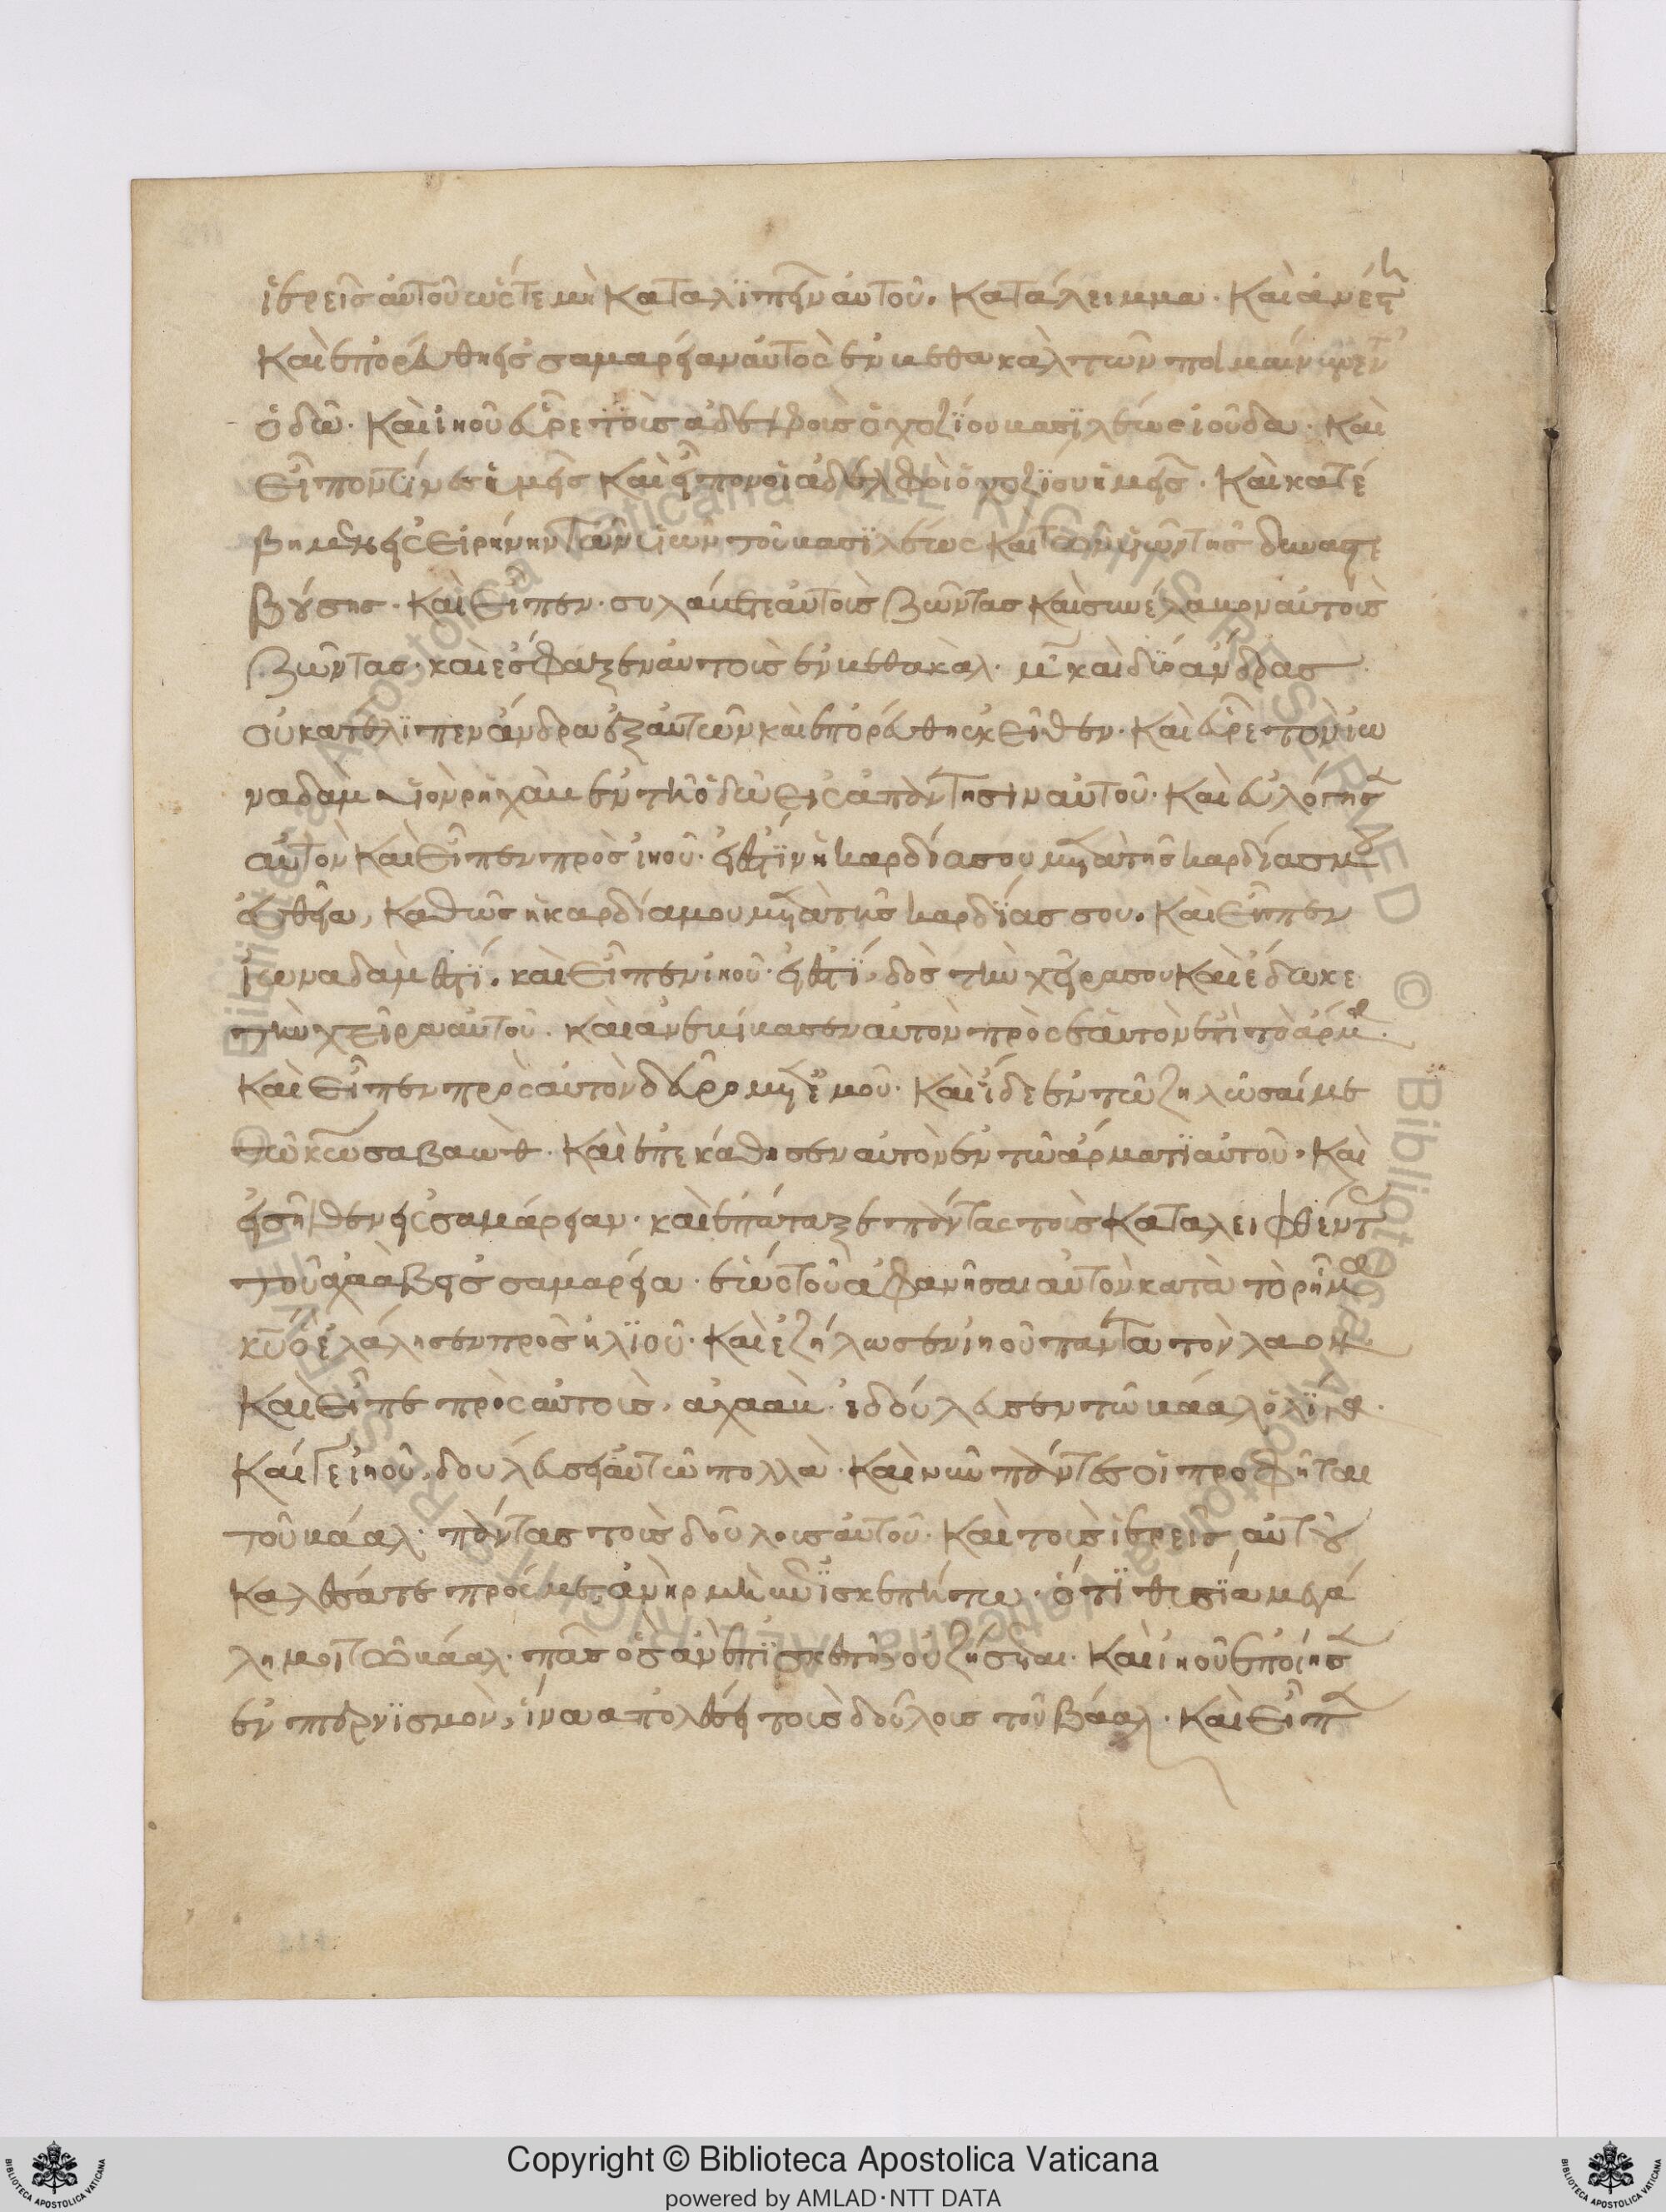 ἱερεῖς αὐτοῦ ὥστε μὴ καταλϊπεῖν αὐτοῦ. κατάλειμμα. καὶ ἀνέστη
καὶ ἐπορεύθη εἰς σαμαρείαν αὐτὸς ἐν βεθακὰλ τῶν ποιμαίνων ἐν τῆ
ὁδῶ. καὶ ἰηοῦ εὗρε τοὺς ἀδελφοὺς ὀχοζίου βασϊλέως ἰούδα. καὶ
εἶπον τίνες ὑμεῖς καὶ εἶπον οἱ ἀδελφοὶ ὀχοζϊου ἡμεῖς. καὶ κατέ
βημεν εἰς εἰρήνην τῶν υἱῶν τοῦ βασιλέως καὶ τῶν υἱῶν τῆς δυναστε
βούσης. καὶ εἶπεν. συλάβετε αὐτοὺς ζῶντας καὶ συνέλαβον αὐτοὺς
ζῶντας. καὶ ἐσφαξεν αὐτοὺς ἐν βεθακὰλ. μ̅ καὶ δύο ἄνδρας
οὐ κατέλϊπεν ἄνδρα ἐξ αὐτῶν καὶ ἐπορεύθη ἐκεῖθεν. καὶ εὗρε τὸν ἰω
ναδὰμ υἱὸν ρηχὰμ ἐν τῆ ὁδῶ εἰς ἀπάντησιν αὐτοῦ. καὶ εὐλόγησε
αὐτὸν καὶ εἶπεν πρὸς ἰηοῦ. εἰ ἔστϊν ἡ καρδία σου μετὰ τῆς καρδίας μου
εὐθεῖα, καθὼς ἡ καρδία μου μετὰ τῆς καρδίας σου. καὶ εἶπεν
ἰωναδὰμ ἔστϊ. καὶ εἶπεν ἰηοῦ. εἰ ἔστϊ, δὸς τὴν χεῖρα σου καὶ ἔδωκε
τὴν χεῖρα αὐτοῦ. καὶ ἀνεβίβασεν αὐτὸν πρὸς ἑαυτὸν ἐπὶ τὸ ἅρμα.
καὶ εἶπεν πρὸς αὐτὸν δεῦρο μετ ἐμοῦ. καὶ ἴδε ἐν τῶ ζηλῶσαί με
τῶ κ̅ω̅ σαβαώθ. καὶ ἐπεκάθησεν αὐτὸν ἐν τῶ ἅρματϊ αὐτοῦ. καὶ
εἰσῆλθεν εἰς σαμάρειαν. καὶ ἐπάταξε πάντας τοὺς καταλειφθέντας
τοῦ ἀχαὰβ εἰς σαμαρεία. ἕως τοῦ ἀφανῆσαι αὐτὸν κατὰ τὸ ρῆμα
κ̅υ̅ ὃ ἐλάλησεν πρὸς ἠλϊοῦ. καὶ ἐζήλωσεν ἰηοῦ πάντα τὸν λαον.
καὶ εἶπε πρὸς αὐτοὺς, ἀχαὰβ. ἐδούλευσεν τῶ βάαλ ὀλϊγα.
καί γε ἰηοῦ, δουλεύσει αὐτῶ πολλὰ. καὶ νῦν πάντες οἱ προφῆται
τοῦ βάαλ. πάντας τοὺς δούλους αὐτοῦ. καὶ τοὺς ἱερεῖς αὐτοῦ
καλέσατε πρός με. ἀνὴρ μὴ ἐπϊσκεπήτω. ὅτϊ θυσϊα μεγά
λη μοι τῶ βάαλ. πᾶς ὃς ἂν ἐπϊσκεπῆ οὐ ζήσεται. καὶ ἰηοῦ ἐποίησε
ἐν πτερνϊσμὸν, ἵνα ἀπολέση τοὺς δούλους τοῦ βάαλ. καὶ εἶπε
Copyright © Biblioteca Apostolica Vaticana
powered by AMLAD·NTT DATA